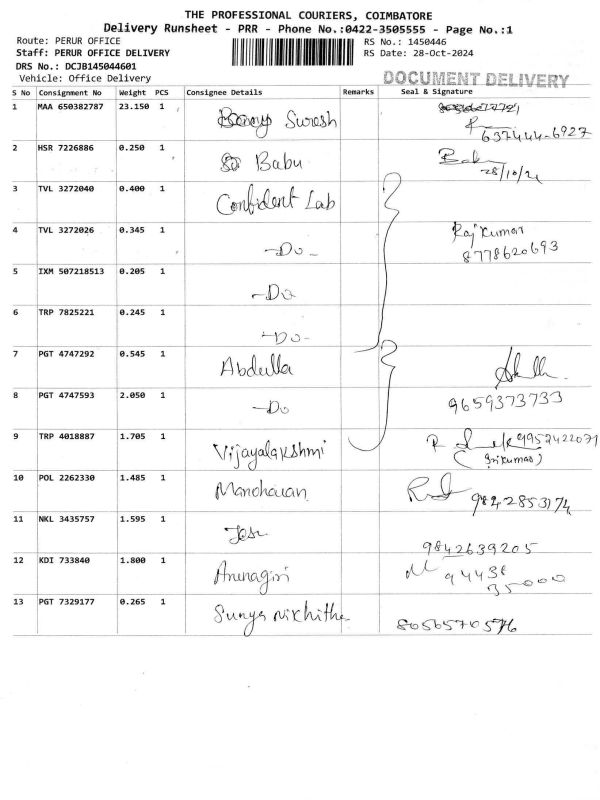 THE PROFESSIONAL COURIERS, COIMBATORE
Delivery Runsheet - PRR - Phone No.:0422-3505555 - Page No.:1
Route: PERUR OFFICE RS No.: 1450446
Staff: PERUR OFFICE DELIVERY RS Date: 28-Oct-2024
DRS No.: DCJB145044601
Vehicle: Office Delivery DOCUMENT DELIVERY
S No Consignment No Weight PCS Consignee Details Remarks Seal & Signature
1 MAA 650382787 23.150 1 Suresh
637444-6927
2 HSR 7226886 0.250 1 Babu
28/10/24
3 TVL 3272040 0.400 1 Confident Lab
4 TVL 3272026 0.345 1 -Do- Rajkumar
8778620693
5 IXM 507218513 0.205 1 -Do
6 TRP 7825221 0.245 1 -Do-
7 PGT 4747292 0.545 1 Abdulla
8 PGT 4747593 2.050 1 -Do 9659373733
9 TRP 4018887 1.705 1 Vijayalakshmi 9952422071
(Srikumar)
10 POL 2262330 1.485 1 Manoharan 9842853174
11 NKL 3435757 1.595 1 Jose
9842639205
12 KDI 733840 1.800 1 Arunagiri 94438
35000
13 PGT 7329177 0.265 1 Surya Nikhitha 8056570576